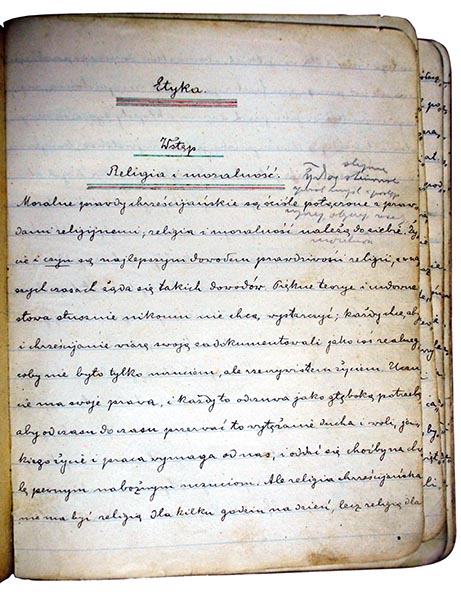 Etyka.
Wstęp
Religia i moralność.
Moralne prawdy chrześcijańskie są ściśle połączone z praw-
dami religijnemi; religia i moralność należą do siebie. Ży-
cie i czyn są najlepszym dowodem prawdziwości religii, a na-
szych czasach żąda się takich dowodów. Piękne teorye i wytworne
słowa słusznie nikomu nie chcą wystarczyć; każdy chce, aby
i chrześcijanie wiarę swoją zadokumentowali jako coś realnego,
coby nie było tylko uczuciem, ale rzeczywistem życiem. Uczu-
cie ma swoje prawa, i każdy to odczuwa jako głęboką potrzebę,
aby od czasu do czasu przerwać to wytężanie ducha i woli, ja-
kiego życie i praca wymaga od nas, i oddać się choćby na chwi-
lę pewnym nabożnym uczuciom. Ale religia chrześcijańska
nie ma być religią dla kilku godzin na dzień, lecz religią dla